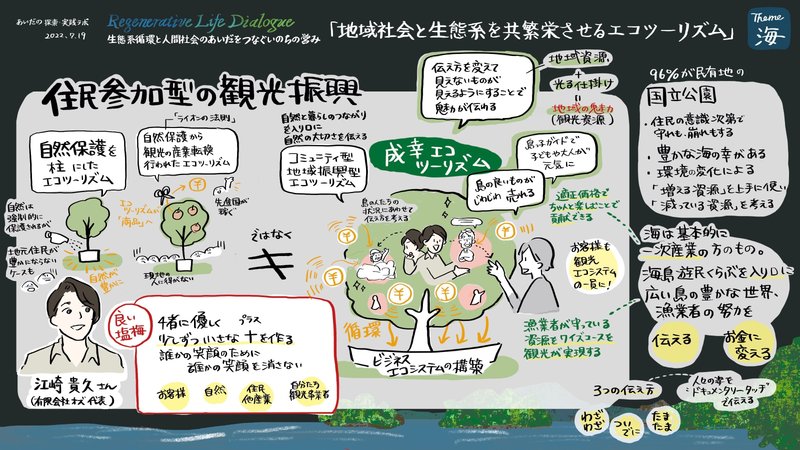 あいだの探索・実践ラボ
2022.7.19
Regenerative Life Dialogue
生態系循環と人間社会のあいだをつなぐいのちの営み
「地域社会と生態系を共繁栄させるエコツーリズム」
Theme
海
住民参加型の観光振興
自然保護を
柱にした
エコツーリズム
自然は
強制的に
保護されるが
地元住民が
豊かにならない
ケースも
自然が
豊かに
「ライオンの法則」
自然保護から
観光の産業転換
行われたエコツーリズム
エコ
ツーリズムが
「商品」へ
先進国が
稼ぐ
現地の
人に得がない
ではなく
自然と暮らしのつながり
を入り口に
自然の大切さを伝える
コミュニティ型
地域振興型
エコツーリズム
伝え方を変えて
見えないものが
見えるようにすることで
魅力が伝わる
地域資源
+
光る仕掛け
=
地域の魅力
(観光資源)
成幸エコ
ツーリズム
島っ子ガイドで
子どもや大人が
元気に
島の良いものが
じわじわ売れる
島の人たちの
状況にあわせて
伝え方を考える
適正価格で
ちゃんと楽しむことで
貢献できる
お客様も
観光
エコシステム
の一員に!
循環
ビジネス
エコシステムの構築
漁業者が守っている
資源をワイズユースを
観光が実現する
良い
塩梅
4者に優しく
プラス
少しずつ小さな+を作る
誰かの笑顔のために
誰かの笑顔を消さない
お客様
自然
住民
他産業
自分たち
観光事業者
江崎貴久さん
(有限会社オズ代表)
96%が民有地の
国立公園
・住民の意識次第で
守れも、崩れもする
・豊かな海の幸がある
・環境の変化による
「増える資源」を上手に使い
「減っている資源」を考える
海は基本的に
一次産業の方のもの。
海島遊民くらぶを入り口に
広い島の豊かな世界、
漁業者の努力を
伝える
お金に
変える
3つの伝え方
人々の幸を
ドキュメンタリータッチ
で伝える
わざ
わざ
ついで
に
たま
たま